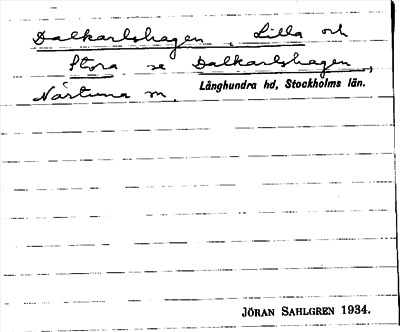 Dalkarlshagen, Lilla och
Stora se Dalkarlshagen,
Närtuna sn,
Långhundra hd, Stockholms län.
JÖRAN SAHLGREN 1934.